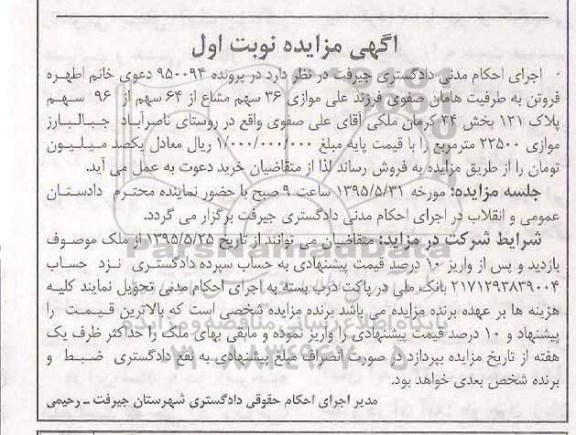 آگهی مزایده نوبت اول
اجرای احکام مدنی دادگستری جیرفت در نظر دارد در پرونده ۹۵۰۰۹۴ دعوی خانم اطهره
فروتن به طرفیت هامان صفوی فرزند علی موازی ۳۶ سهم مشاع از ۶۴ سهم از ۹۶ سهم
پلاک ۱۲۱ بخش ۳۴ کرمان ملکی آقای علی صفوی واقع در روستای ناصرآباد جبالبارز
موازی ۲۲۵۰۰ مترمربع را با قیمت پایه مبلغ ۱/۰۰۰/۰۰۰/۰۰۰ ریال معادل یکصد میلیون
تومان را از طریق مزایده به فروش رساند لذا از متقاضیان خرید دعوت به عمل می آید.
جلسه مزایده: مورخه ۱۳۹۵/۵/۳۱ ساعت ۹ صبح با حضور نماینده محترم دادستان
عمومی و انقلاب در اجرای احکام مدنی دادگستری جیرفت برگزار می گردد.
شرایط شرکت در مزاید: متقاضیان می توانند از تاریخ ۱۳۹۵/۵/۲۵ از ملک موصوف
بازدید و پس از واریز ۱۰ درصد قیمت پیشنهادی به حساب سپرده دادگستری نزد حساب
۲۱۷۱۲۹۳۸۳۹۰۰۴ بانک ملی در پاکت درب بسته به اجرای احکام مدنی تحویل نمایند کلیه
هزینه ها بر عهده برنده مزایده می باشد برنده مزایده شخصی است که بالاترین قیمت را
پیشنهاد و ۱۰ درصد قیمت پیشنهادی را واریز نموده و مابقی بهای ملک را حداکثر ظرف یک
هفته از تاریخ مزایده بپردازد در صورت انصراف مبلغ پیشنهادی به نفع دادگستری ضبط و
برنده شخص بعدی خواهد بود.
مدیر اجرای احکام حقوقی دادگستری شهرستان جیرفت ـ رحیمی
ParsNamadData
پایگاه اطلاع رسانی مناقصه و مزایده